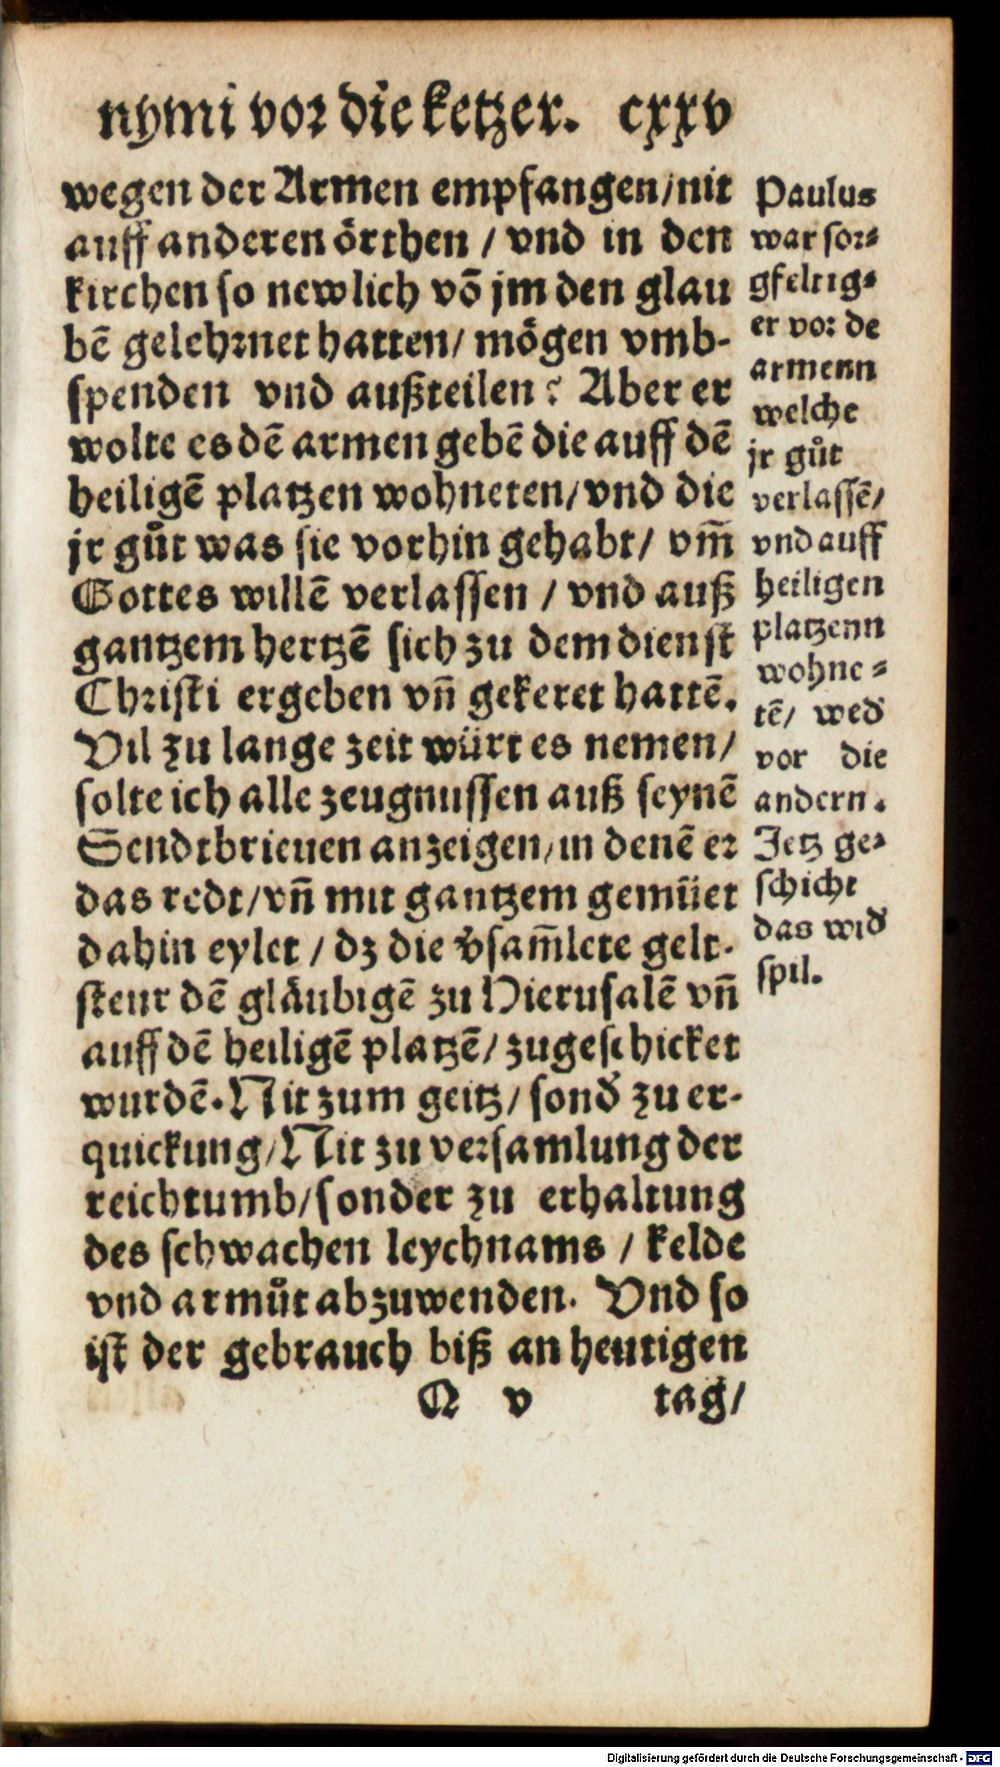 nymi vor die ketzer. cxxv
wegen der Armen empfangen/nit
auff anderen örthen / vnd in den
kirchen so newlich võ jm den glau
bẽ gelehrnet hatten/ mögen vmb-
spenden vnd außteilen? Aber er
wolte es dẽ armen gebẽ die auff dẽ
heiligẽ platzen wohneten/vnd die
jr gůt was sie vorhin gehabt/ vm̃
Gottes willẽ verlassen / vnd auß
gantzem hertzẽ sich zu dem dienst
Christi ergeben vñ gekeret hattẽ.
Vil zu lange zeit würt es nemen/
solte ich alle zeugnussen auß seynẽ
Sendtbrieuen anzeigen/in denẽ er
das redt/vñ mit gantzem gemüet
dahin eylet / dz die v̊sam̃lete gelt-
steur dẽ gläubigẽ zu Hierusalẽ vñ
auff dẽ heiligẽ platzẽ/ zugeschicket
wurdẽ. Nit zum geitz/ sond̕ zu er-
quickung/Nit zu versamlung der
reichtumb/sonder zu erhaltung
des schwachen leychnams / kelde
vnd armůt abzuwenden. Vnd so
ist der gebrauch biß an heutigen
Q v tag/
Paulus
war sor⸗
gfeltig⸗
er vor de
armenn
welche
jr gůt
verlassẽ/
vnd auff
heiligen
platzenn
wohne⸗
tẽ/ wed̕
vor die
andern.
Jetz ge⸗
schicht
das wid̕
spil.
Digitalisierung gefördert durch die Deutsche Forschungsgemeinschaft - DFG